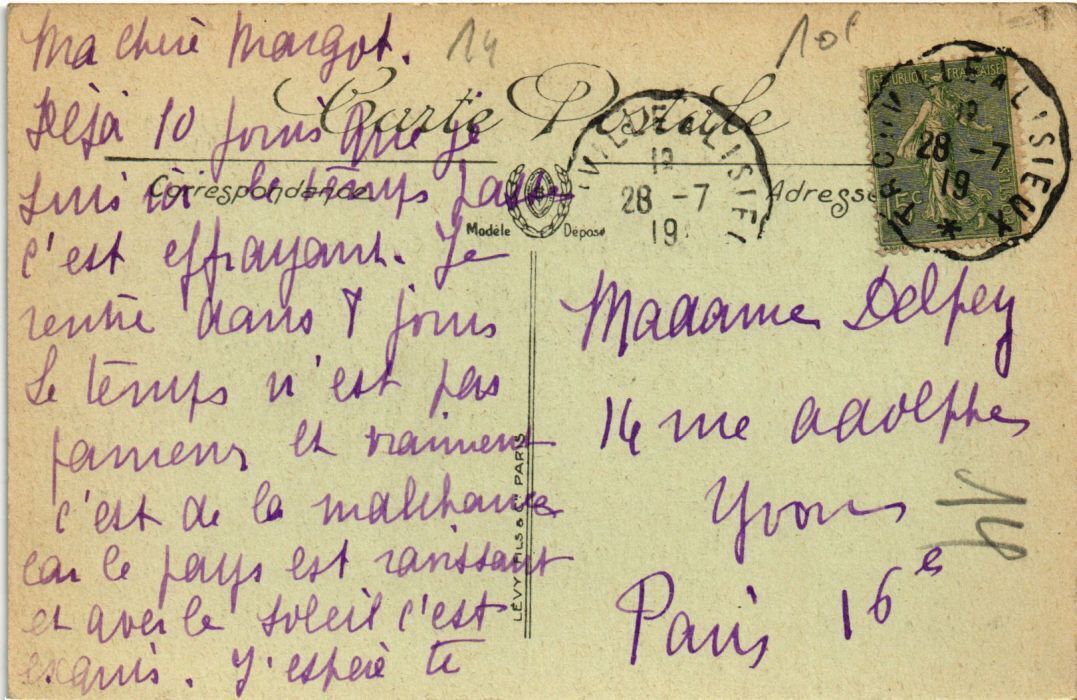 Ma chère Margot.
14
10f
Carte Postale
Déjà 10 jours que je
suis ici le temps passe
c'est effrayant. Je
rentre dans 8 jours
Le temps n'est pas
fameux et vraiment
c'est de la malchance
car le pays est ravissant
et avec le soleil c'est
exquis. J'espère te
Correspondance
Modèle Déposé
Adresse
LÉVY FILS & Cie PARIS
LISIEUX
12
28 - 7
19
REPUBLIQUE FRANÇAISE
LISIEUX
12
28 - 7
19
*
Madame Delpey
14 rue Adolphe
Yvon
Paris 16e
14